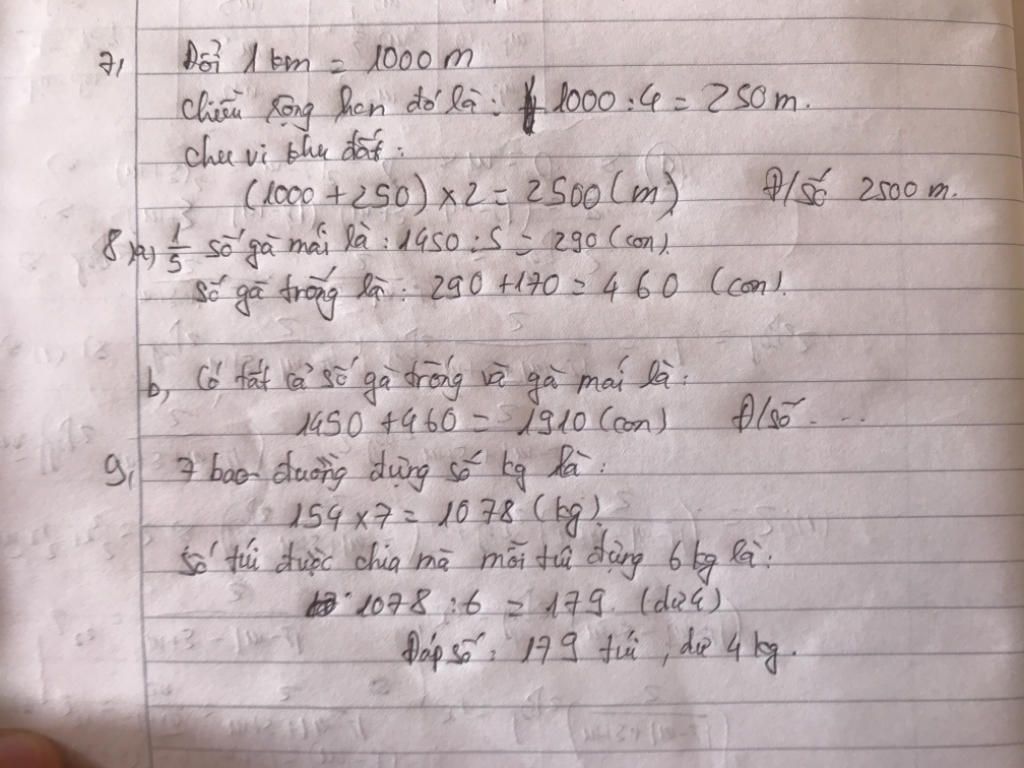 7, Đổi 1 km = 1000 m
Chiều rộng hcn đó là: 1000 : 4 = 250 m.
Chu vi khu đất:
(1000 + 250) x 2 = 2500 (m) Đ/số 2500 m.
8, a) 1/5 số gà mái là : 1450 : 5 = 290 (con).
Số gà trống là : 290 + 170 = 460 (con).
b, Có tất cả số gà trống và gà mái là :
1450 + 460 = 1910 (con) Đ/số ...
9, 7 bao đường đựng số kg là :
154 x 7 = 1078 (kg).
Số túi được chia mà mỗi túi đựng 6 kg là :
1078 : 6 = 179. (dư 4)
Đáp số : 179 túi, dư 4 kg.